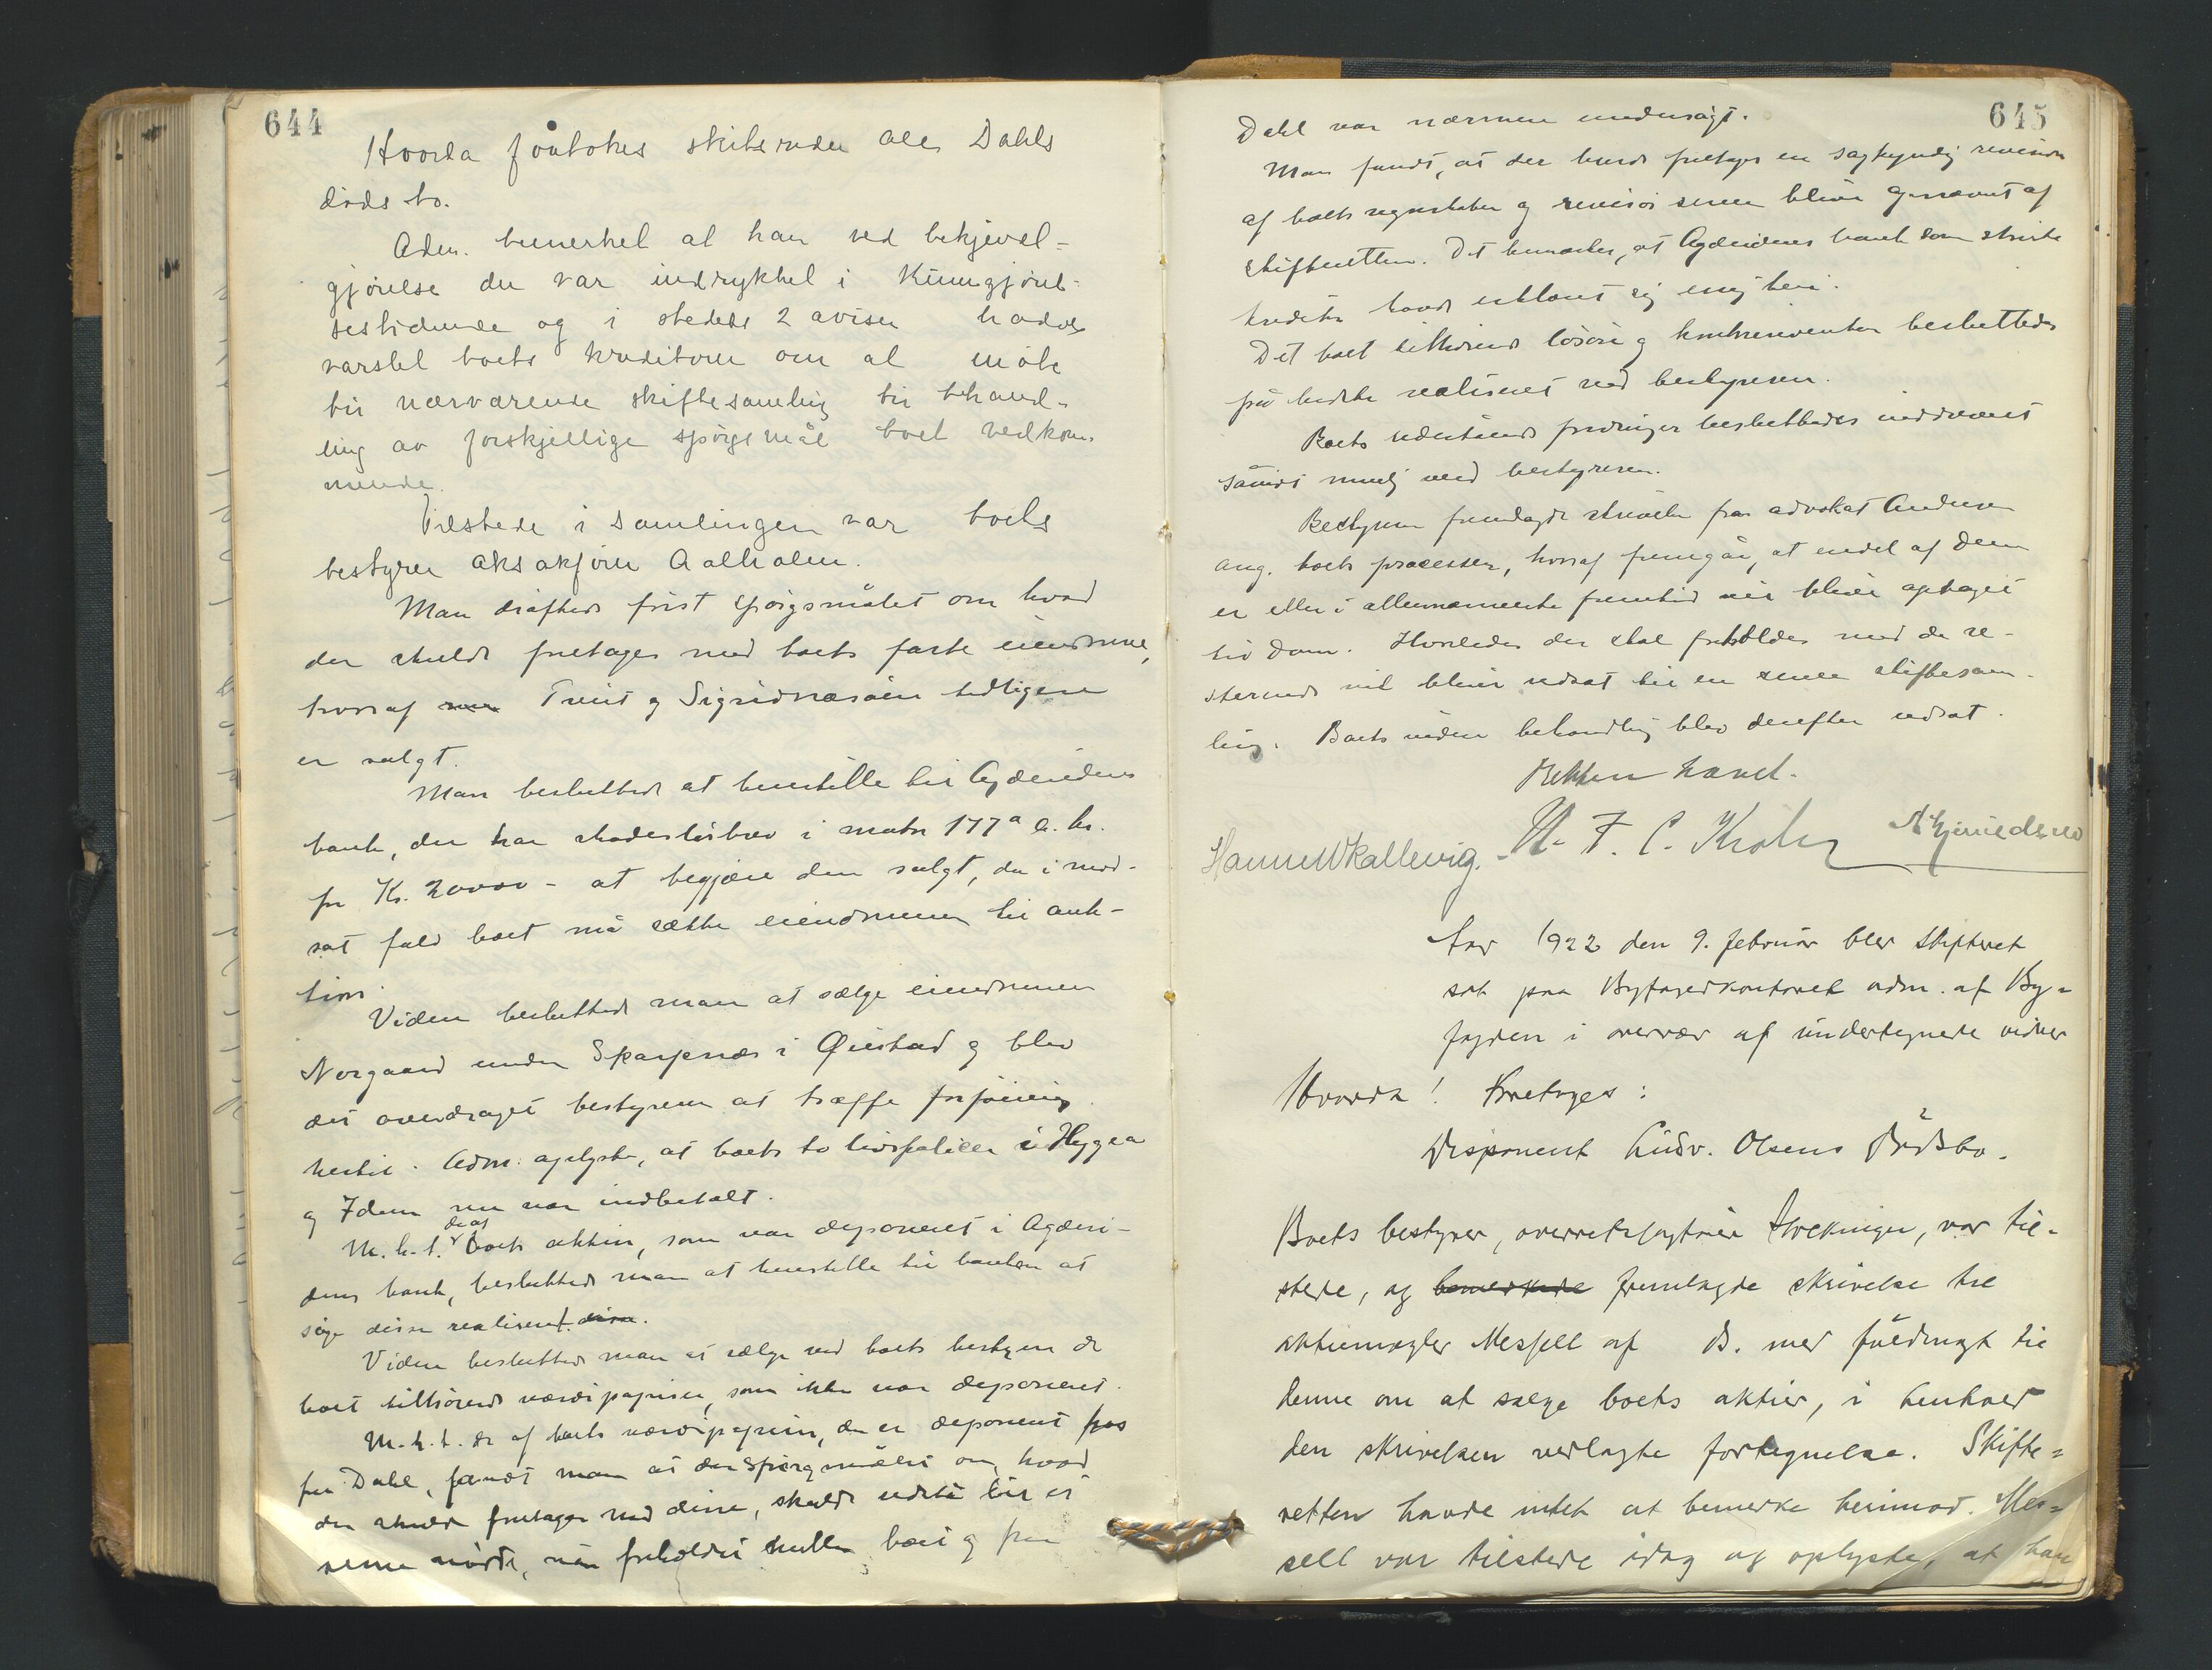 644
Hvorda foretokes skibsreder Alex Dahls
döds bo.
Adm. bemerket at han ved bekjendt-
gjörelse der var indrykket i Kundgjörel-
sestidende og i stedets 2 aviser hadde
varslet boets kreditorer om at möte
til nærværende skiftesamling til behand-
ling av forskjellige spörgsmål boet vedkom-
mende.
Tilstede i samlingen var boets
bestyrer aksakförer Aalholm.
Man dröftede först spörgsmålet om hvad
der skulde foretages med boets faste eiendomme,
hvoraf Tveit og Sigridnæsöien tidligere
er solgt.
Man besluttede at henstille til Agdesidens
bank, der har skadeslösbrev i matr 177ª a. br.
for Kr. 20000 - at begjære den solgt, da i mod-
sat fald boet må sætte eiendommen til auk-
tion.
Viden besluttede man at sælge eiendommen
Norgaard under Sparsnæs i Öiestad og blev
det overdraget bestyreren at træffe forföining
hertil. Adm. oplyste, at boets to livspolicer i Hygea
og Idun nu var indbetalt.
M.h.t. de af boets aktier, som var deponeret i Agdesi-
dens bank, besluttede man at henstille til banken at
söge disse realiseret. disse.
Viden besluttede man at sælge ved boets bestyrer de
boet tilhörende værdipapirer, som ikke var deponeret.
M.h.t. de af boets værdipapirer, der er deponert hos
fru Dahl, fandt man at spörgsmålet om, hvad
der skulde foretages med disse, skulde udstå til et
senere möde, når forholdet mellem boet og fru
645
Dahl var nærmere undersögt.
Man fandt, at der burde foretages en sagkyndig revision
af boets regnskaber og revisor senere blive opnævnt af
skifteretten. Det bemærkes, at Agdesidens bank som störste
kreditor havde erklæret sig enig heri.
Det boet tilhörende lösöre og kontorinventar besluttedes
på bedste realiseret ved bestyreren.
Boets udestående fordringer besluttedes inddrevet
såvidt mulig ved bestyreren.
Bestyreren fremlagde skrivelse fra advokat Andersen
ang. boets processer, hvoraf fremgår, at endel af dem
er eller i allernærmeste fremtid vil blive optaget
til dom. Hvorledes der skal forholdes med de re-
sterende vil blive udsat til en senere skiftesam-
ling. Boets videre behandling blev derefter udsat.
Retten hævet.
Hanne W Kallevig. N. F. C. Krohn
Aar 1922 den 9. februar blev skifteret
sat paa Byfogedkontoret adm. af By-
fogden i overvær af undertegnede vidner
Hvorda! Foretoges:
Disponent Ludv. Olsens Dödsbo.
Boets bestyrer, overretssagförer, var til-
stede, og bemerkede fremlagde skrivelse til
aktiemegler Messell af D. med fuldmagt til
denne om at sælge boets aktier, i henhold
den skrivelsen vedlagte fortegnelse. Skifte-
retten havde intet at bemerke herimod. Mes-
sell var tilstede idag og oplyste, at han